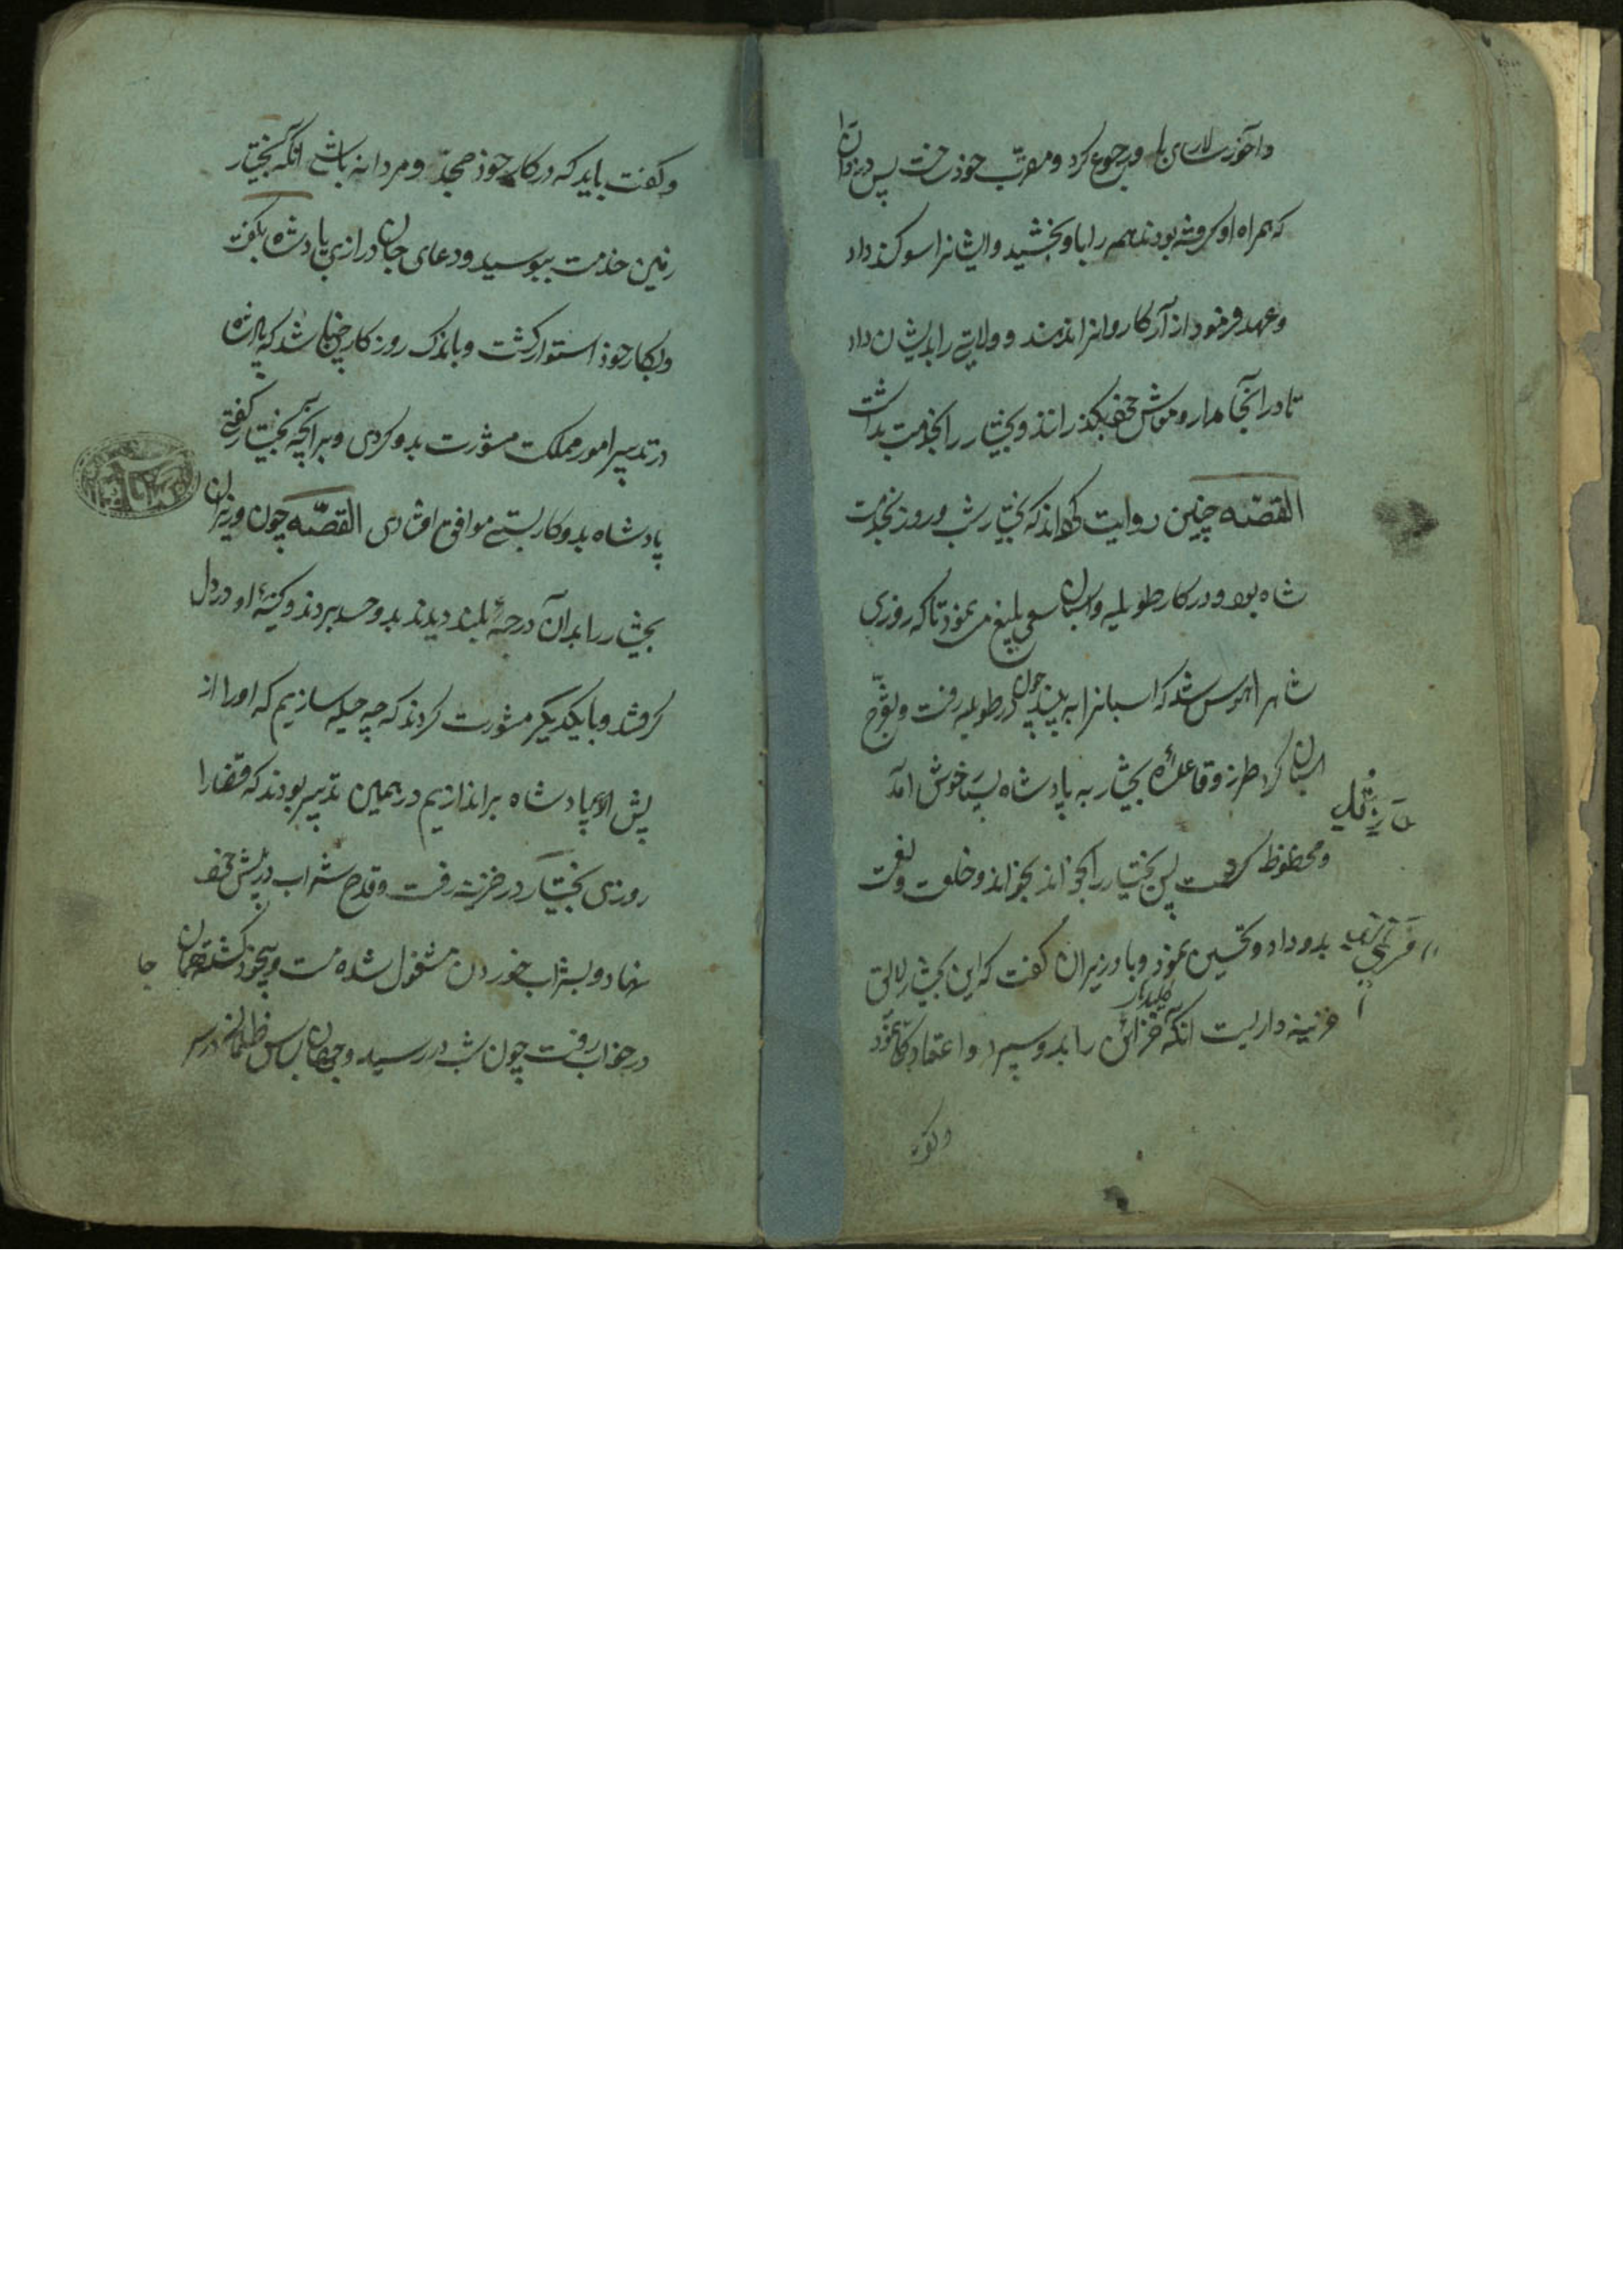 و آخور سالاری باو رجوع کرد و مقرّب خوذ ساخت پس دزدانرا
که همراه او گرفته بودند همه را باو بخشید و ایشانرا سوکند داد
و عهد فرمود از آنکه کاروانرا نزنند و ولایتی را بدیشان داد
تا در آنجا مدار و معوش خود بگذرانند و بختیار را بخدمت بداشت
القصّه چنین روایت کرده‌اند که بختیار شب و روز بخدمت
شاه بود و در کار طویله و اسپان سعی بلیغ می نمود تا که روزی
شاه را هوس شد که اسبانرا به بیند چون در طویله رفت و تفرّج
اسپان کرد طرز و قاعدهٔ بختیار به پادشاه بسیار خوش آمد
و محظوظ گشت پس بختیار را بخواند و خلعت و نعمت
بدو داد و تحسین نمود و با وزیران گفت که این بختیار لایق
خزینه داریست انگه کلیدهای خزائن را بدو سپرد و اعتماد کلّی نمود
و گفت
و گفت باید که در کار خوذ مجدّ و مردانه باشی انگه بختیار
زمین خذمت ببوسید و دعای جان درازی پادشاه بگفت
و بکار خوذ استوار گشت و باندک روزگار چنان شد که پادشاه
در تدبیر امور مملکت مشورت بدو کردی و هر آنچه بختیار گفتی
پادشاه بدو کار بستی موافق افتادی القصّه چون وزیران
بختیار را بدان درجهٔ بلند دیدند بدو حسد بردند و کینهٔ او در دل
گرفتند و با یکدیگر مشورت کردند که چه حیله سازیم که او را از
پیش پادشاه براندازیم در همین تدبیر بودند که قضارا
روزی بختیار در خزینه رفت و قدح شراب در پیش خود
نهاد و بشراب خوردن مشغول شده مست و بیخود گشته همان جا
در خواب رفت چون شب در رسید و جهان لباس ظلمانی در سر